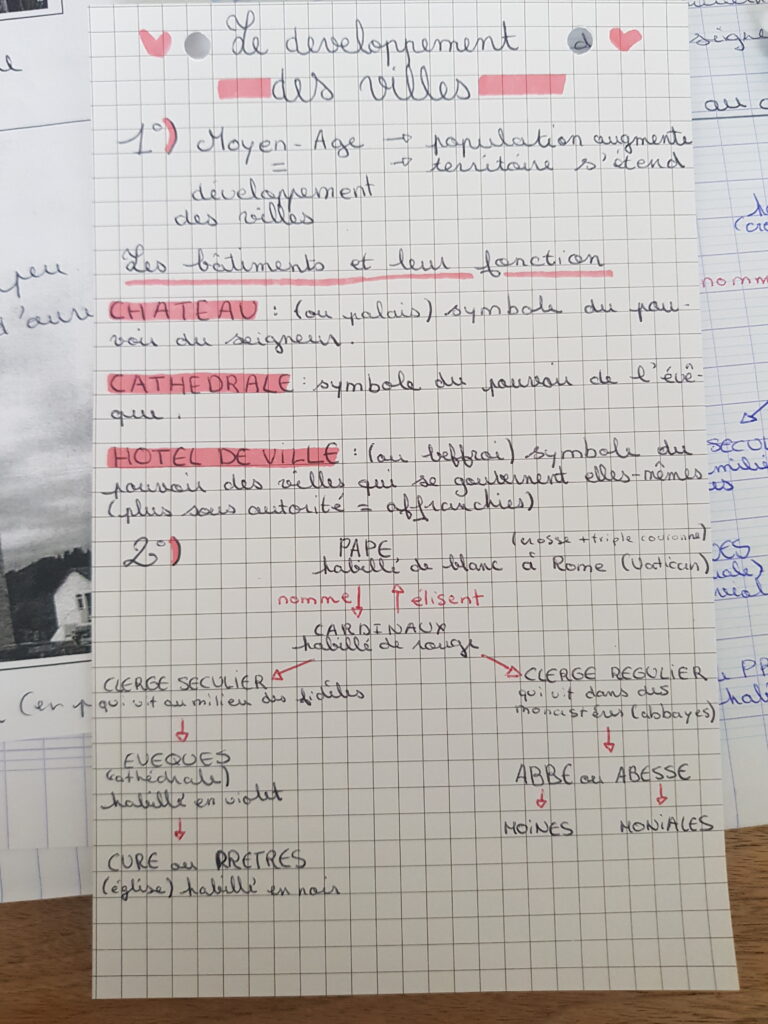 Le developpement
des villes
1°) Moyen-Age → population augmente
= → territoire s'étend
développement
des villes
Les bâtiments et leur fonction
CHATEAU : (ou palais) symbole du pou-
voir du seigneur.
CATHEDRALE : symbole du pouvoir de l'évê-
que.
HOTEL DE VILLE : (ou beffroi) symbole du
pouvoir des villes qui se gouvernent elles-mêmes
(plus sous autorité = affranchies)
2°) PAPE (crosse + triple couronne)
habillé de blanc à Rome (Vatican)
nomme ↓ ↑ élisent
CARDINAUX
habillé de rouge
CLERGE SECULIER
qui vit au milieu des fidèles
CLERGE REGULIER
qui vit dans des
monastères (abbayes)
↓
EVEQUES
(cathédrale)
habillé en violet
↓
CURE ou PRETRES
(église) habillé en noir
↓
ABBE ou ABESSE
↓ ↓
MOINES MONIALES
peu
(en p
signe
au
nomm
SECUL
milie